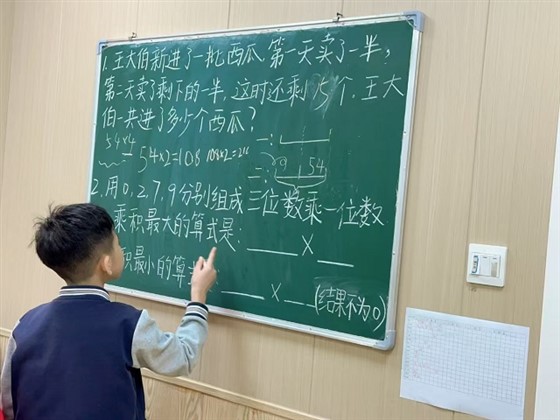 1.王大伯新进了一批西瓜,第一天卖了一半,
第二天卖了剩下的一半,这时还剩 个.王大
伯一共进了多少个西瓜?
54×4
54×2=108
一:
二: 54
2.用0,2,7,9分别组成三位数乘一位数
乘积最大的算式是:____×__
积最小的算 ____×__(结果不为0)